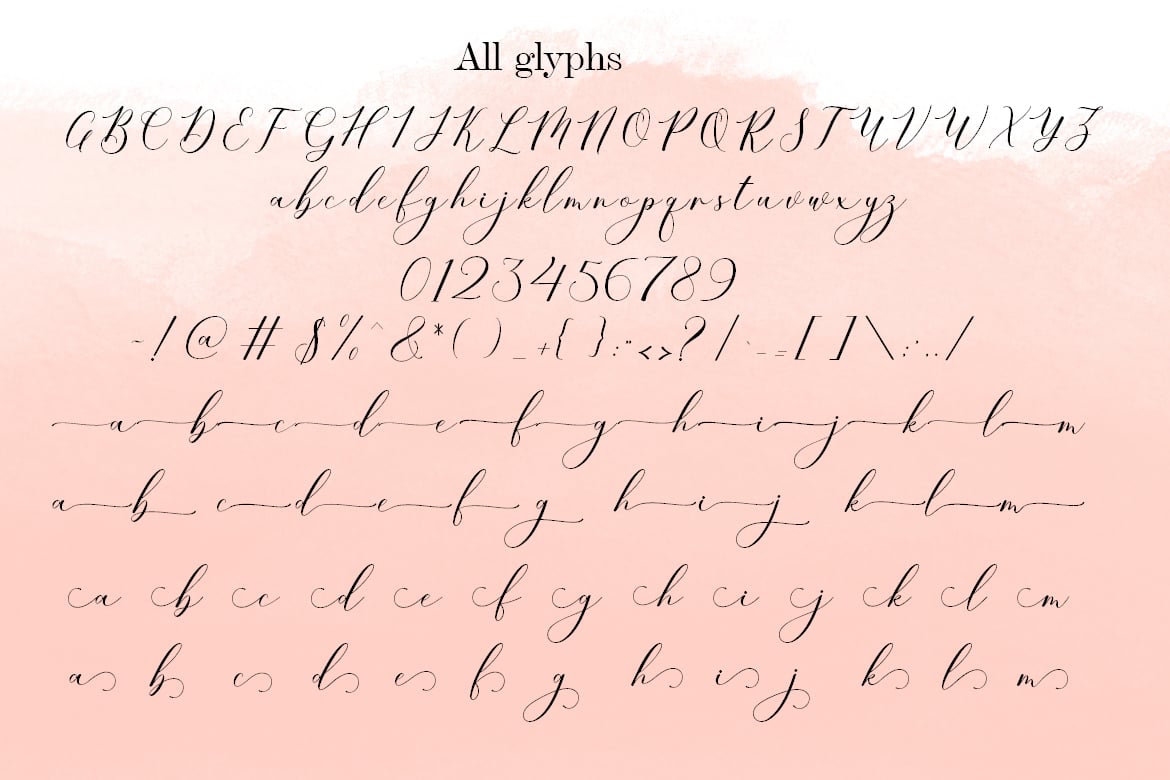 All glyphs
A B C D E F G H I J K L M N O P Q R S T U V W X Y Z
a b c d e f g h i j k l m n o p q r s t u v w x y z
0 1 2 3 4 5 6 7 8 9
~ ! @ # $ % ^ & * ( ) _ + { } : " < > ? / ` - = [ ] \ ; ' , . /
a b c d e f g h i j k l m
a b c d e f g h i j k l m
a b c d e f g h i j k l m
a b c d e f g h i j k l m